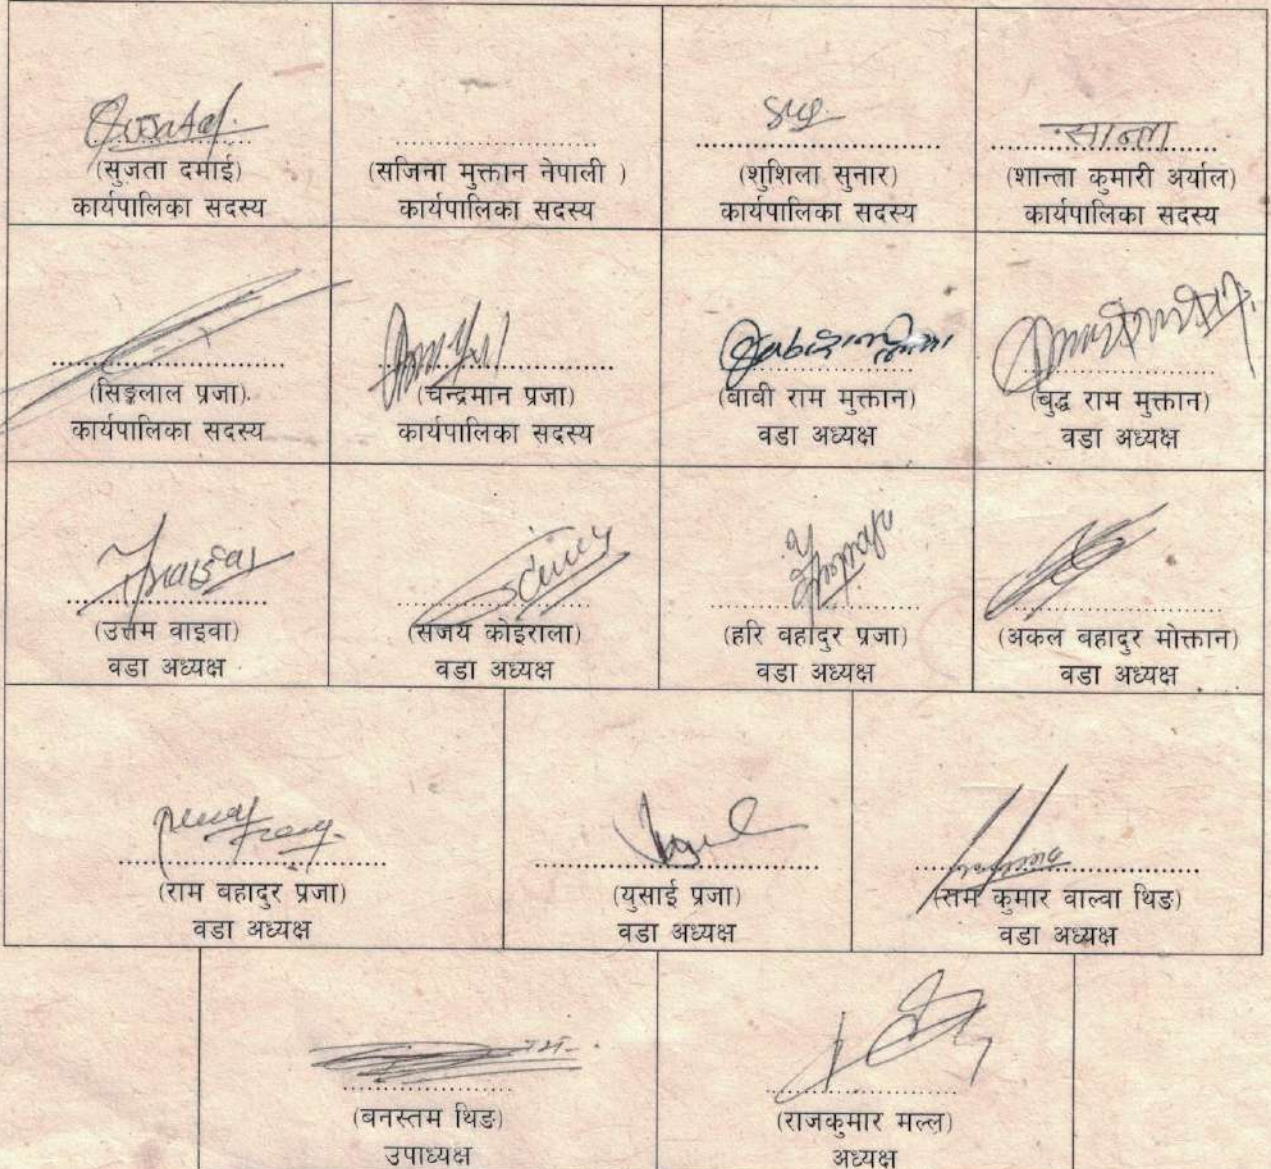 (सुजता दमाई)
कार्यपालिका सदस्य
(सजिना मुक्तान नेपाली )
कार्यपालिका सदस्य
(शुशिला सुनार)
कार्यपालिका सदस्य
सान्ता
(शान्ता कुमारी अर्याल)
कार्यपालिका सदस्य
(सिङ्गलाल प्रजा)
कार्यपालिका सदस्य
(चन्द्रमान प्रजा)
कार्यपालिका सदस्य
(वावी राम मुक्तान)
वडा अध्यक्ष
(बुद्ध राम मुक्तान)
वडा अध्यक्ष
(उत्तम वाइवा)
वडा अध्यक्ष
(संजय कोइराला)
वडा अध्यक्ष
(हरि वहादुर प्रजा)
वडा अध्यक्ष
(अकल बहादुर मोक्तान)
वडा अध्यक्ष
(राम बहादुर प्रजा)
वडा अध्यक्ष
(युसाई प्रजा)
वडा अध्यक्ष
कुमार वाल्वा थिङ)
वडा अध्यक्ष
(बनस्तम थिङ)
उपाध्यक्ष
(राजकुमार मल्ल)
अध्यक्ष